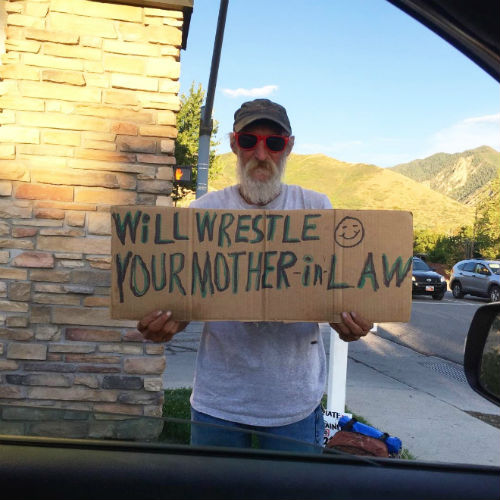 WiLL WRESTLE
YOUR MOTHER-in-LAW